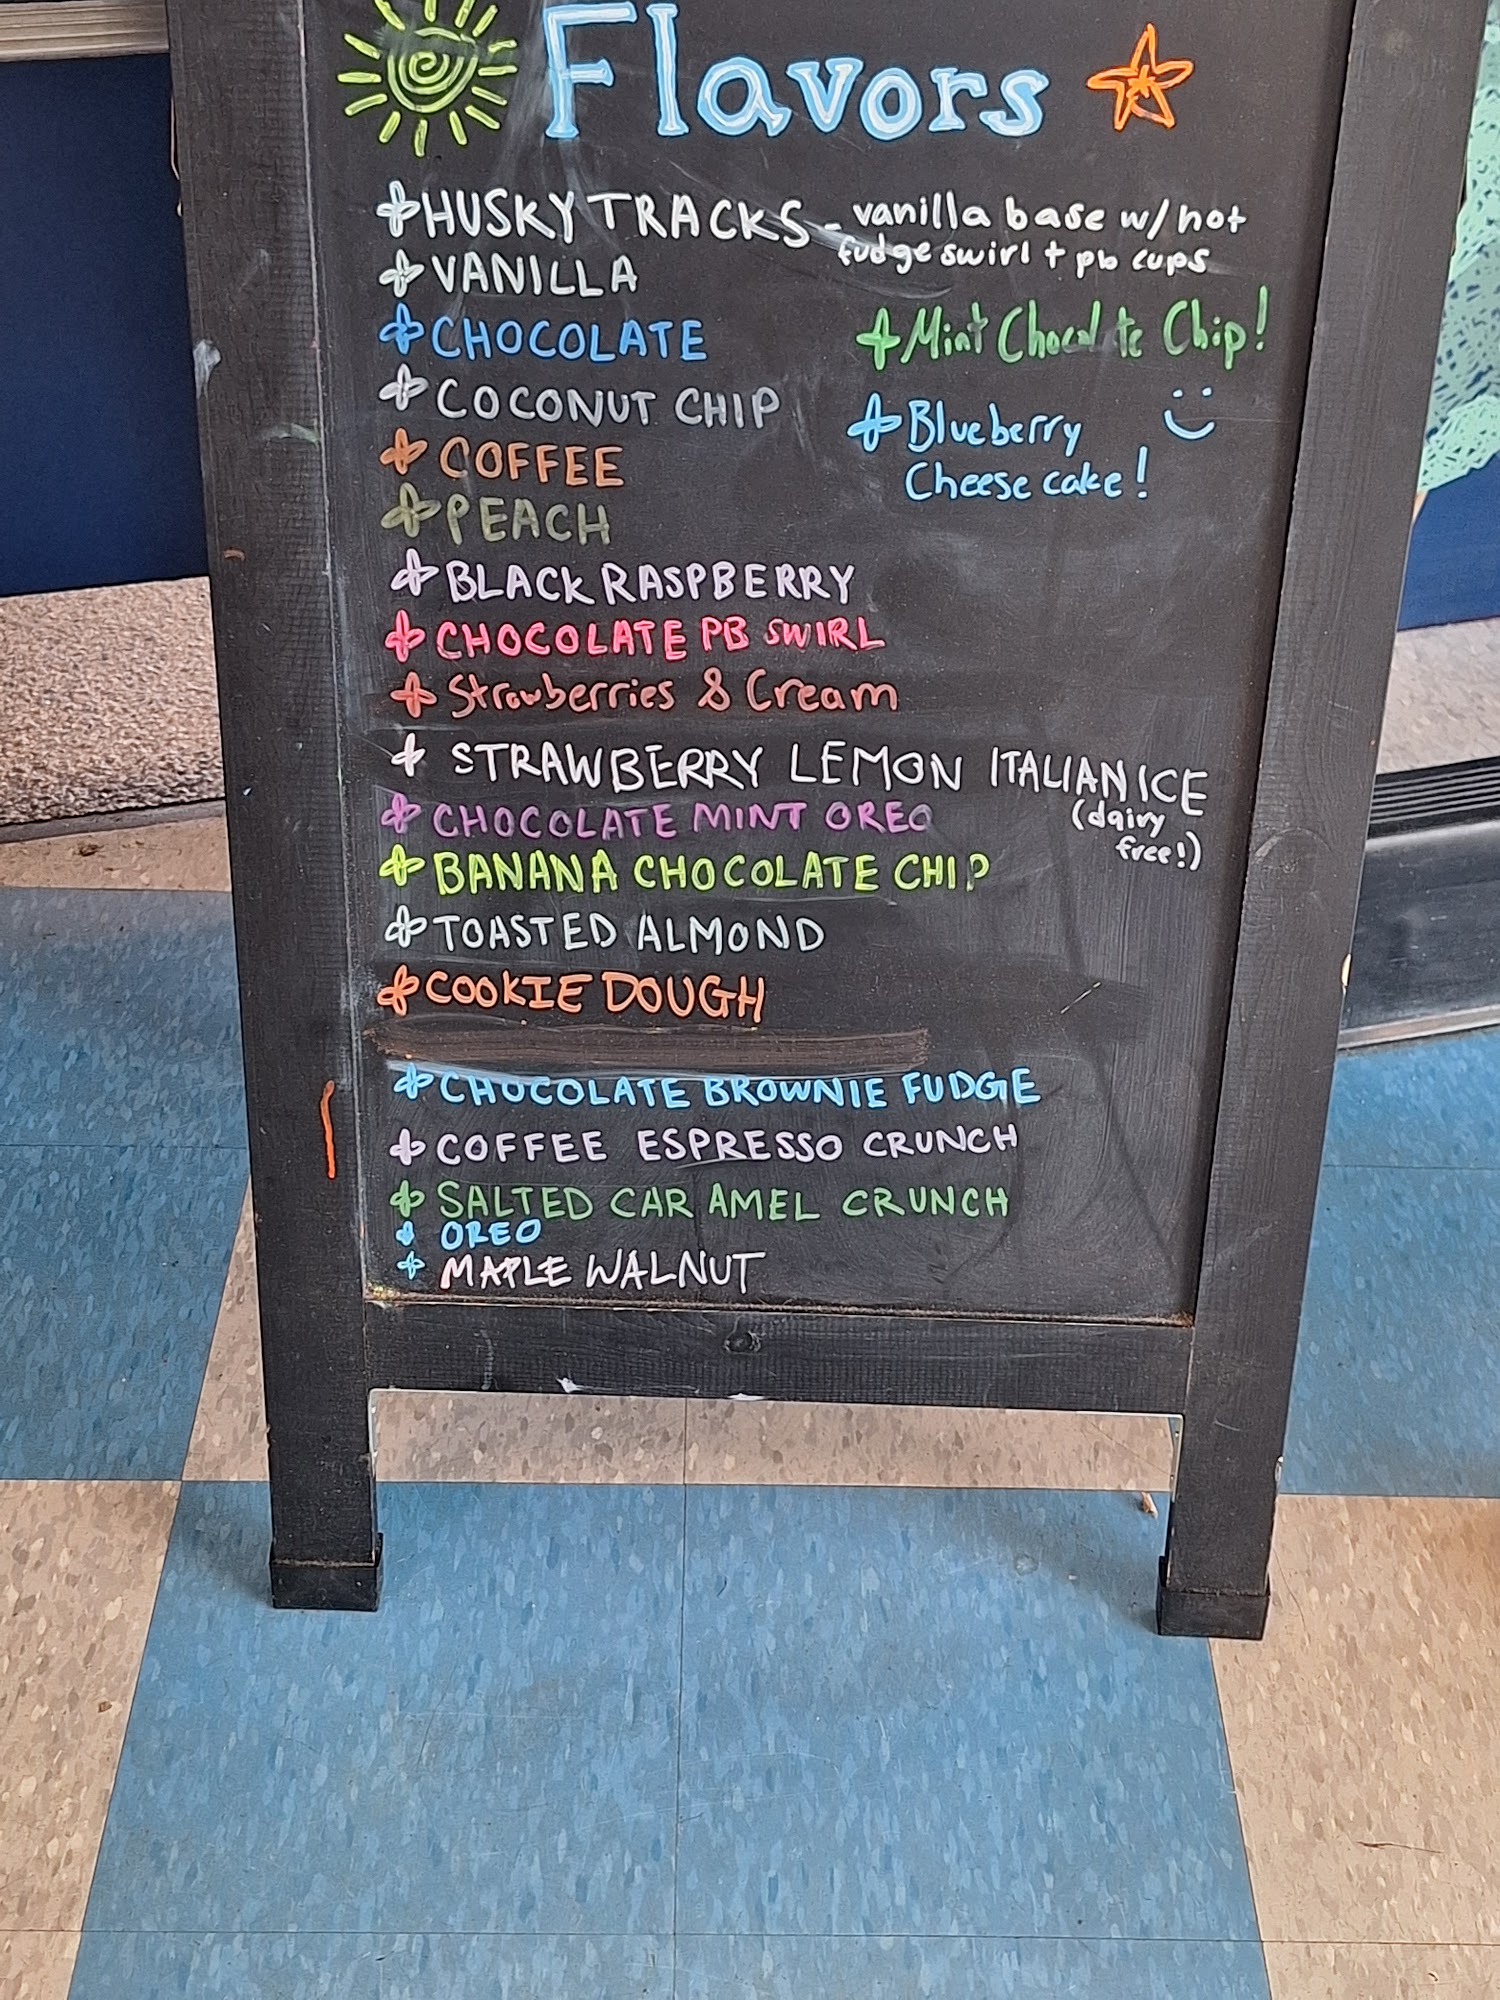 Flavors
HUSKY TRACKS - vanilla base w/ hot
fudge swirl + pb cups
VANILLA
CHOCOLATE
Mint Chocolate Chip!
COCONUT CHIP
Blueberry
Cheesecake!
COFFEE
PEACH
BLACK RASPBERRY
CHOCOLATE PB SWIRL
Strawberries & Cream
STRAWBERRY LEMON ITALIAN ICE
(dairy
free!)
CHOCOLATE MINT OREO
BANANA CHOCOLATE CHIP
TOASTED ALMOND
COOKIE DOUGH
CHOCOLATE BROWNIE FUDGE
COFFEE ESPRESSO CRUNCH
SALTED CARAMEL CRUNCH
OREO
MAPLE WALNUT